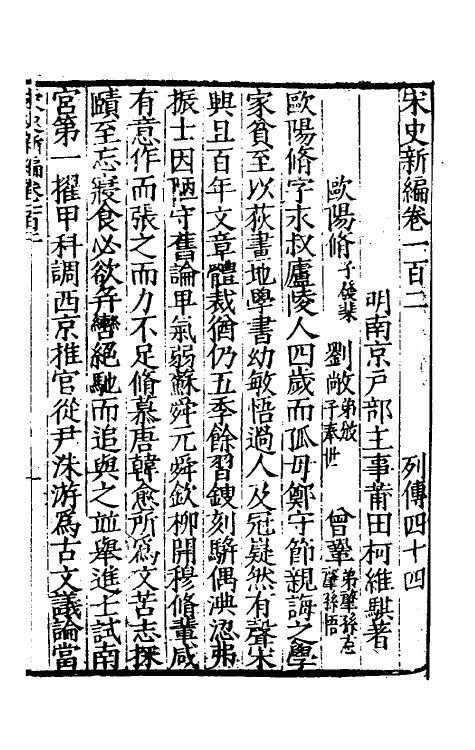 宋史新編卷一百二 列傳四十四
明南京戶部主事莆田柯維騏著
歐陽脩子發棐 劉敞弟攽子奉世 曾鞏弟肇
歐陽脩字永叔廬陵人四歲而孤母鄭守節親誨之學
家貧至以荻畫地學書幼敏悟過人及冠嶷然有聲宋
興且百年文章體裁猶仍五季餘習鎪刻駢偶淟涊弗
振士因陋守舊論甲氣弱蘇舜元舜欽柳開穆脩輩咸
有意作而張之而力不足脩慕唐韓愈所爲文苦志探
賾至忘寢食必欲并轡絕馳而追與之並舉進士試南
宮第一擢甲科調西京推官從尹洙游爲古文議論當